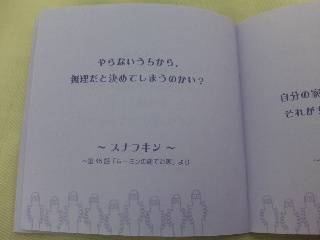 やらないうちから、
無理だと決めてしまうのかい？
～ スナフキン ～
～第45話「ムーミンの建てた家」より
自分の家
それが